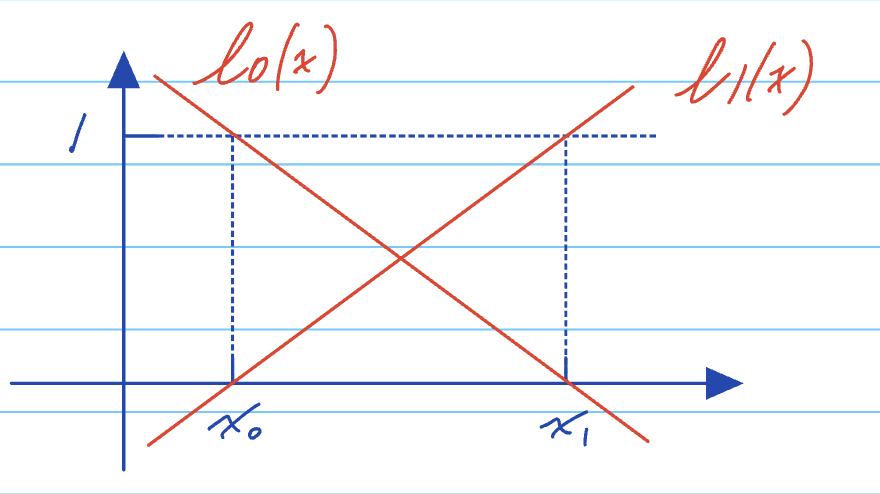 l0(x)
l1(x)
1
x0
x1